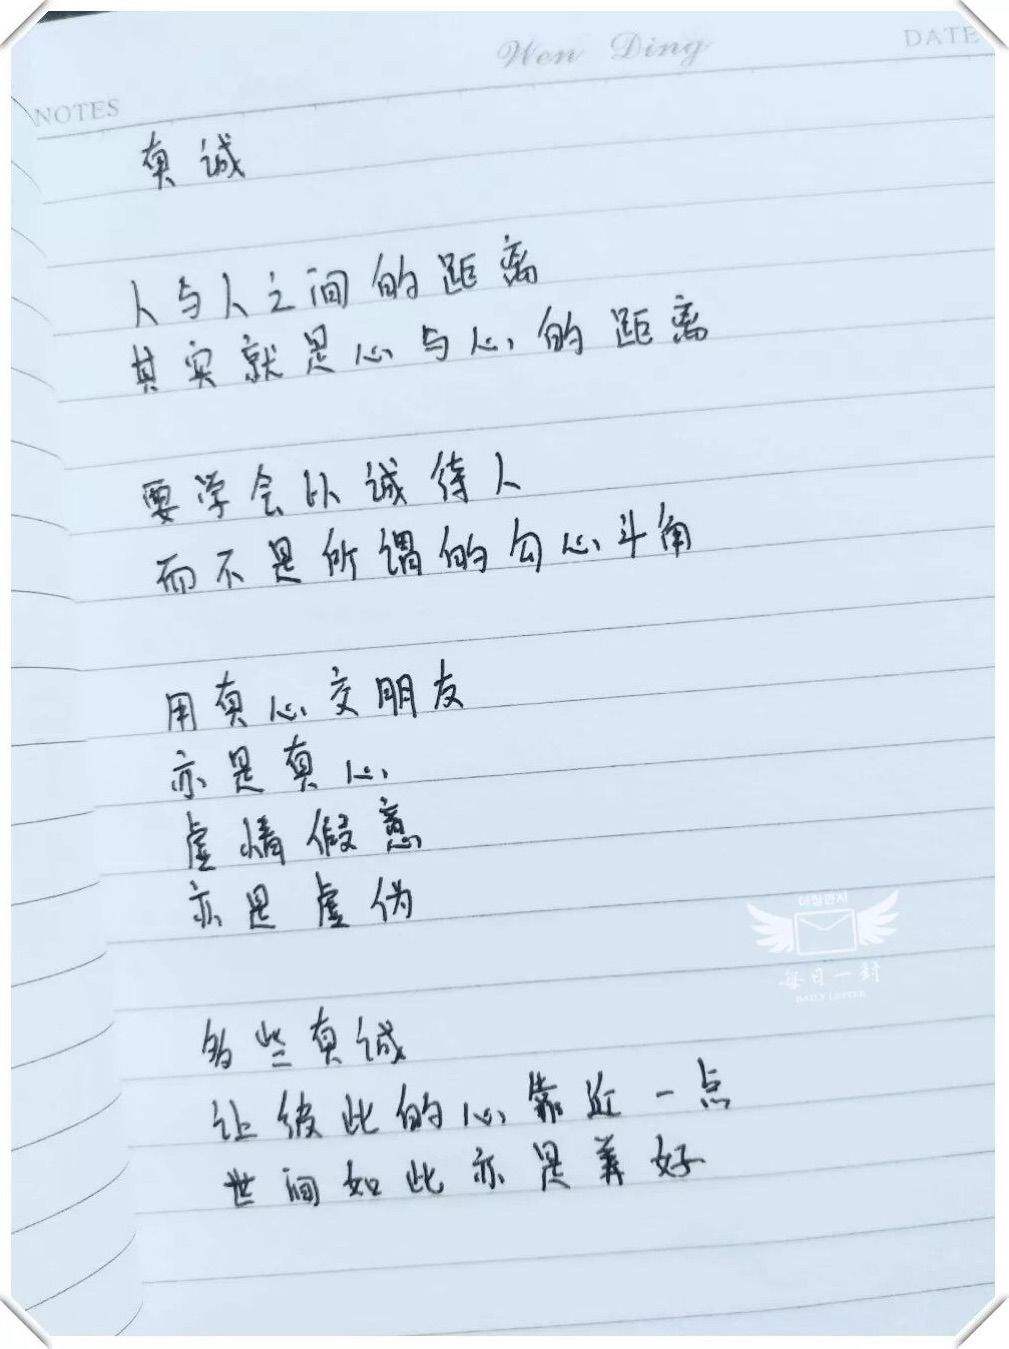 Wen Ding
DATE
NOTES
真诚
人与人之间的距离
其实就是心与心的距离
要学会以诚待人
而不是所谓的勾心斗角
用真心交朋友
亦是真心
虚情假意
亦是虚伪
多些真诚
让彼此的心靠近一点
世间如此亦是美好
每日一封
DAILY LETTER